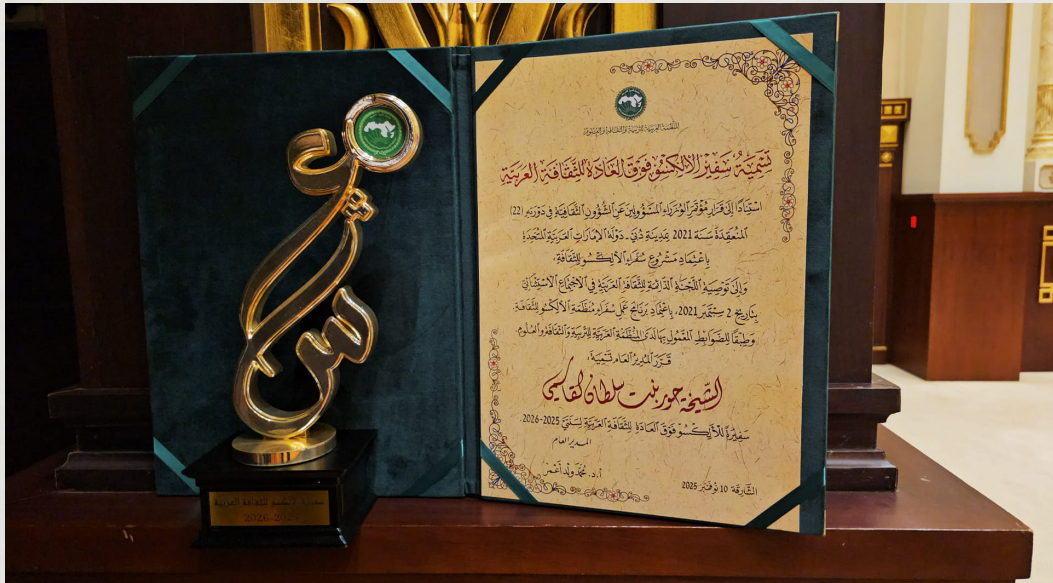 المنظمة العربية للتربية والثقافة والعلوم
تسمية سفير الألكسو فوق العادة للثقافة العربية
استنادًا إلى قرار مؤتمر الوزراء المسؤولين عن الشؤون الثقافية في دورته (22)
المنعقدة سنة 2021 بمدينة دبي - دولة الإمارات العربية المتحدة
باعتماد مشروع سفراء الألكسو للثقافة،
وإلى توصية اللجنة الدائمة للثقافة العربية في الاجتماع الاستثنائي
بتاريخ 2 سبتمبر 2021، باعتماد برنامج عمل سفراء منظمة الألكسو للثقافة.
وطبقًا للضوابط المعمول بها لدى المنظمة العربية للتربية والثقافة والعلوم،
قرر المدير العام تسمية:
الشيخة حور بنت سلطان القاسمي
سفيرة للألكسو فوق العادة للثقافة العربية لسنتي 2025-2026.
المدير العام
أ.د. محمد ولد أعمر
الشارقة 10 نوفمبر 2025
سفيرة الألكسو للثقافة العربية
2026-2025